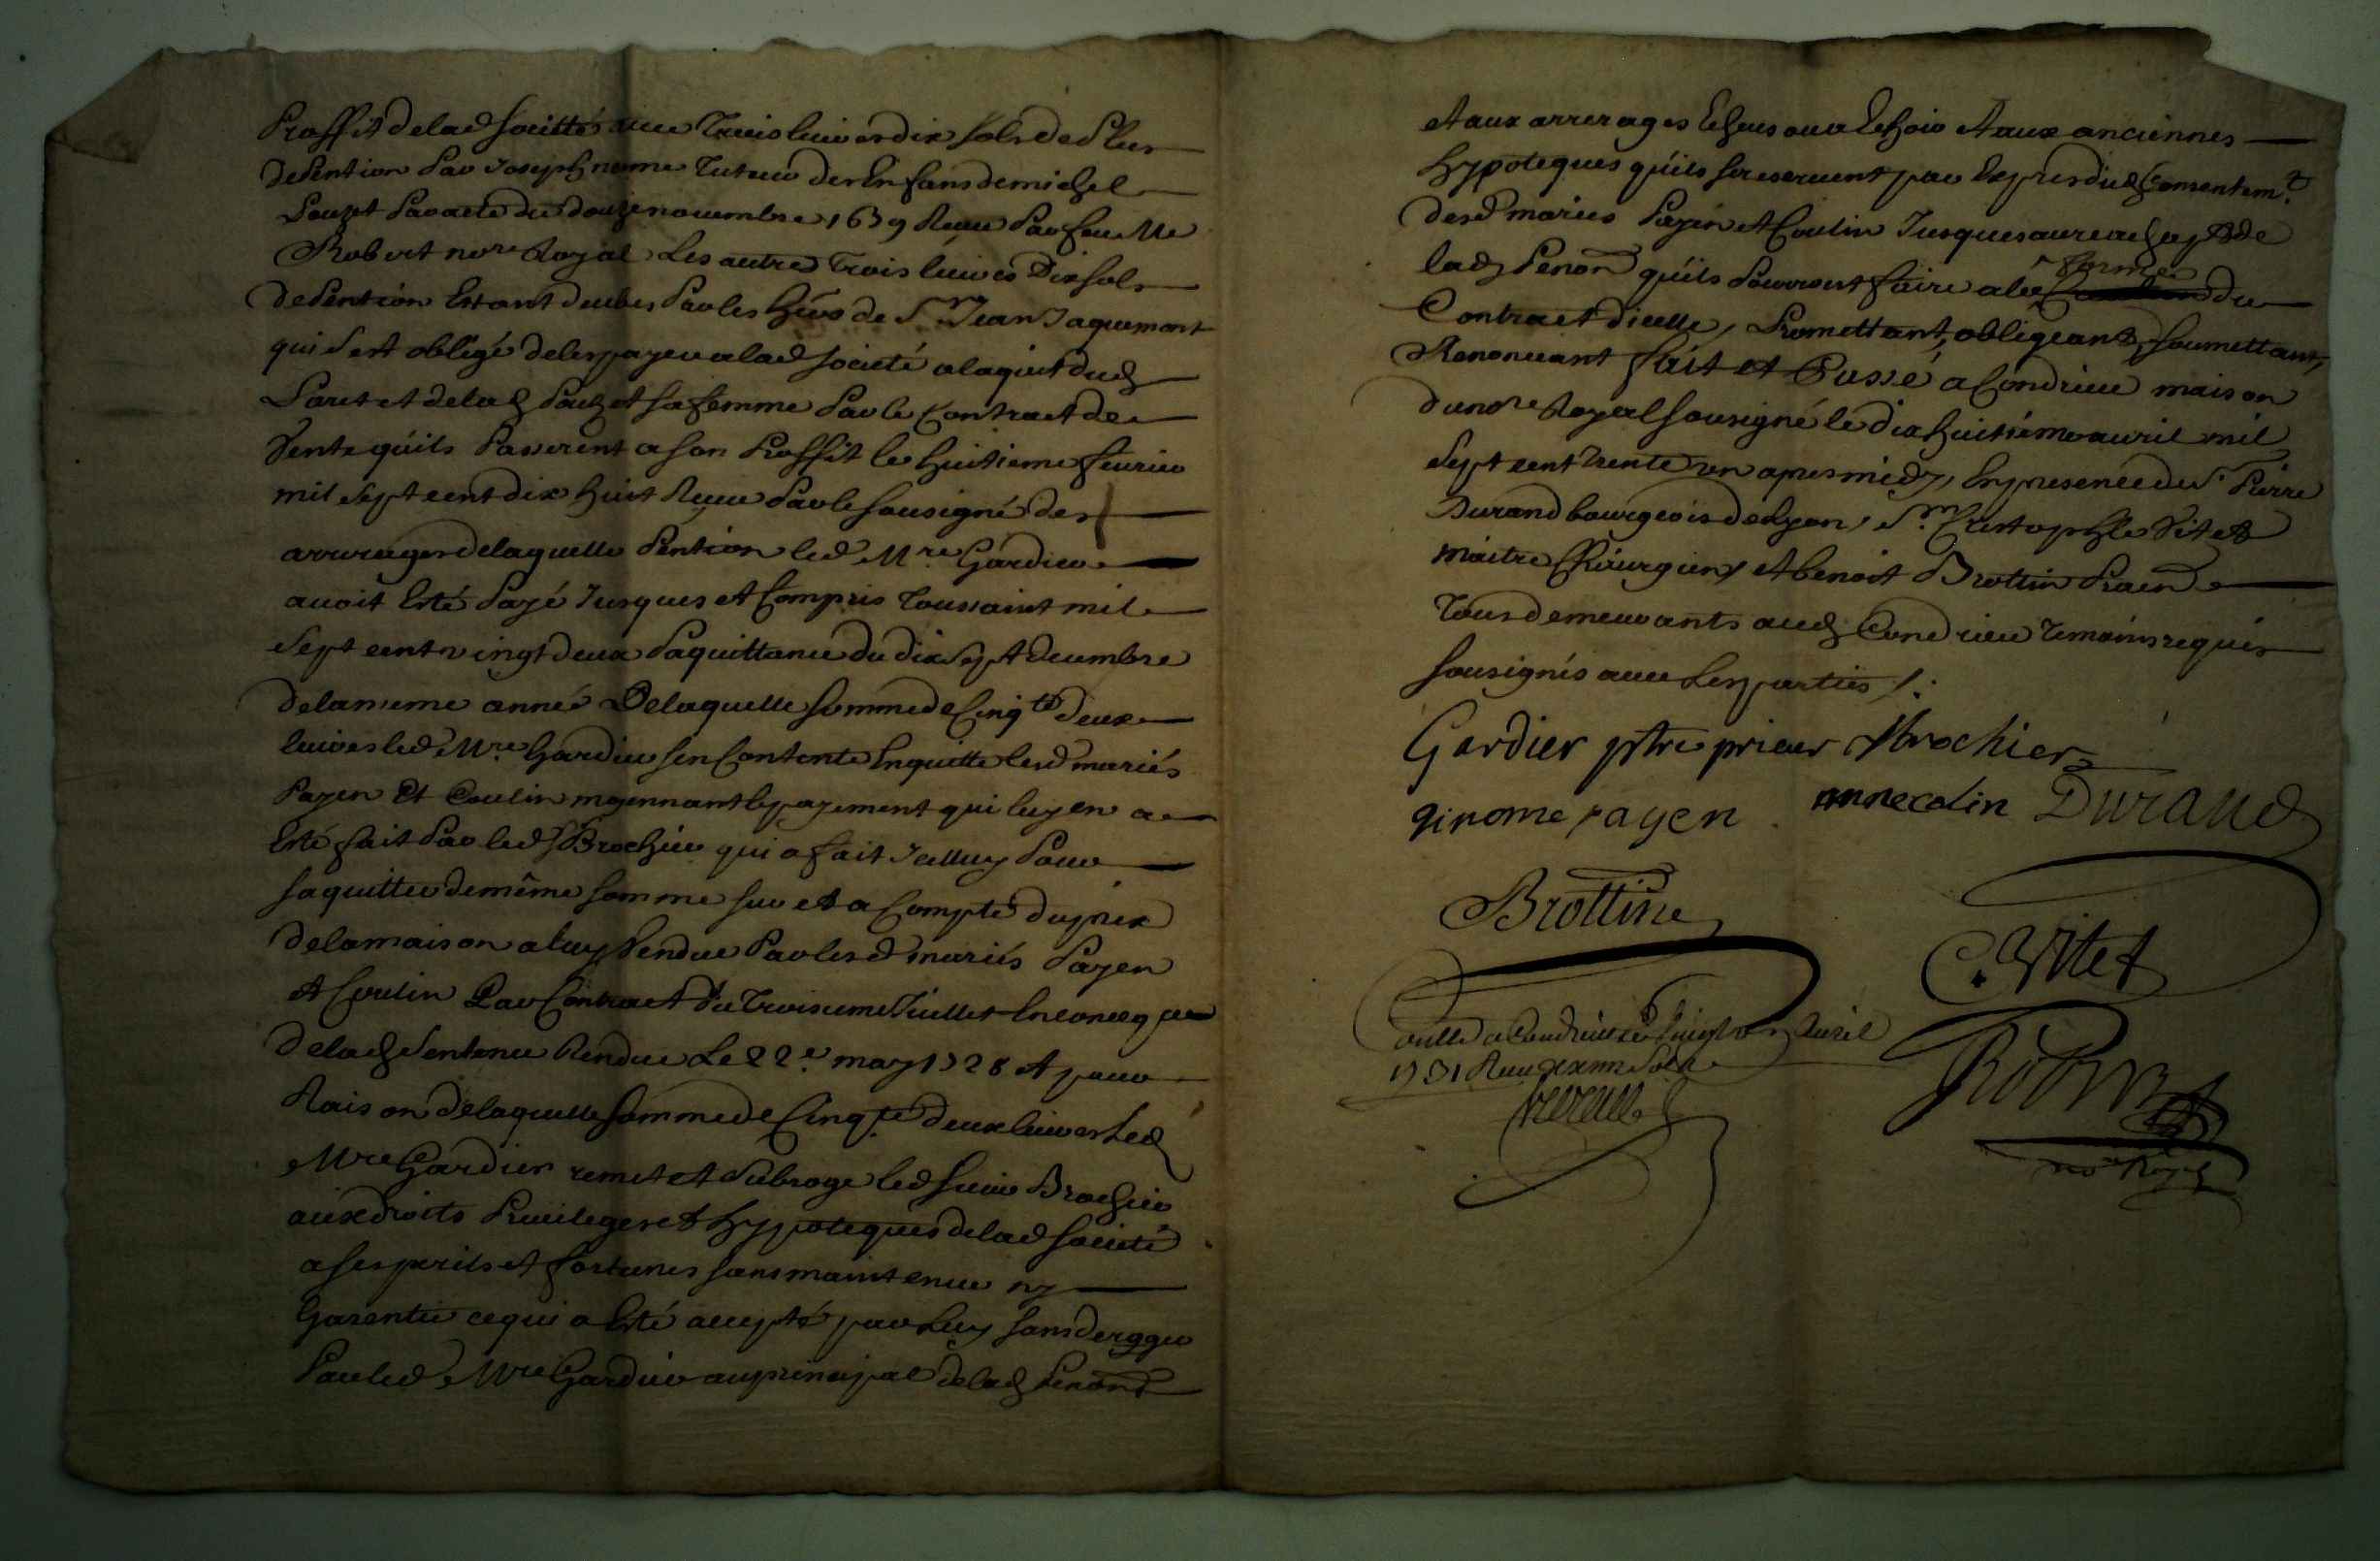 Proffit delad societté avec Trois livres dix sols de plus
de Pention par Joseph nome Tuteur des Enfans de michel
Pouzet par acte du douze novembre 1639 Receu par feu Me
Robert nore Royal Les autres Trois livres Dix sols
de Pention Estant deubes par les hers de Sr Jean Jaquemont
qui s'est obligé de les payer a lad societé a laquit dud
Paret et delad Pouzet sa femme par le Contract de
Vente qu'ils Passerent a son Proffit le huitieme fevrier
mil sept cent dix huit Receu par le sousigné des
arrerages de laquelle Pention led Mre Gardier
avoit Esté Payé Jusques et Compris Toussaint mil
sept cent vingt deux Paquittance du dix sept decembre
de la meme année De laquelle somme de Cinqte deux
livres led Mre Gardier sen Contente En quitte lesd mariés
Payen Et Coulin moyennant le payement qui luy en a
Esté fait par led Sr Brochier qui a fait Icelluy Pour
saquitter de même somme sur et a Compte du prix
de la maison a luy Vendue Par lesd mariés Payen
et Coulin Par Contract du Troisieme Juillet En conseq ce
delad Sentence Rendue Le 22e may 1728 et pour
Raison de laquelle somme de Cinqte deux livres Led
Mre Gardier remet et subroge led sieur Brochier
aux droits Privileges et hypoteques delad societé
a ses perils et fortunes sans maintenue ny
Garentie ce qui a Esté accepté par Luy sans deroger
Par led Mre Gardier au principal delad Penon
et aux arrerages Echeus ou a Echoir et aux anciennes
hypoteques qu'ils se reservent par Exprès du Consentemt
desd mariés Payen et Coulin Jusques au reachapt de
lad Penon qu'ils Pourront faire a la forme du
Contract dicelle, Promettant, obligeant, soumettant,
Renoncant fait et Passé a Condrieu maison
du nore Royal sousigné le dix huitième avril mil
sept cent trente un apres midy, En presence de Sr Pierre
Durand bourgeois de Lyon, Sr Cristophle Vitet
maitre Chirurgien, et benoit Brottin Praen
Tous demeurants aud Condrieu Temoins requis
sousignés avec Les parties /.
Gardier ptre prieur Brochier
girome payen anne colin Durand
Brottin
C. Vitet
a Condrieu Le vingt un Avril
1731 Receu Sols
Robert
nore Royal